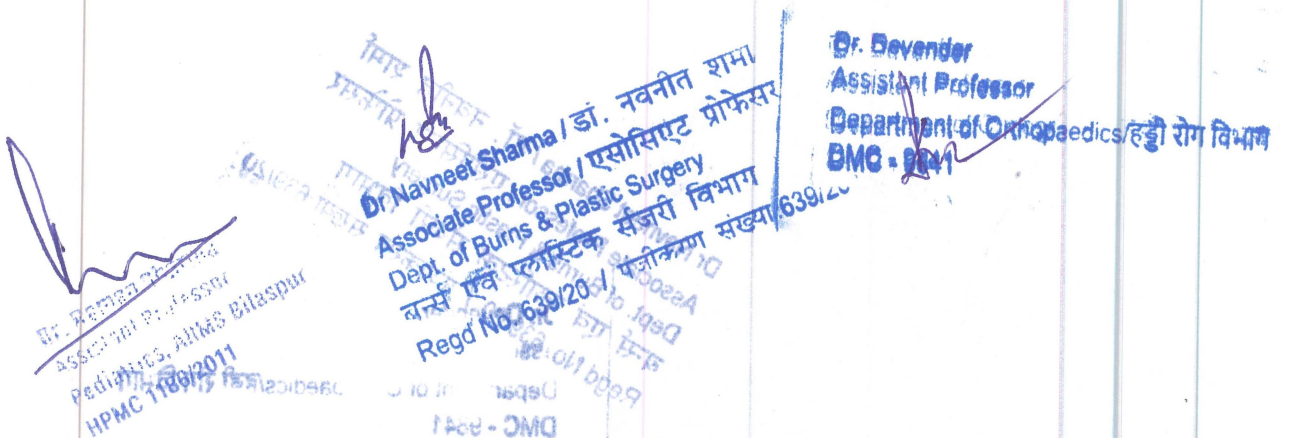 Dr. Raman Sharma
Assistant Professor
Pediatrics, AIIMS Bilaspur
HPMC 1186/2011
Dr Navneet Sharma / डां. नवनीत शर्मा
Associate Professor / एसोसिएट प्रोफेसर
Dept. of Burns & Plastic Surgery
बर्न्स एवं प्लास्टिक सर्जरी विभाग
Regd No. 639/20 / पंजीकरण संख्या 639/20
Dr. Devender
Assistant Professor
Department of Orthopaedics/हड्डी रोग विभाग
DMC - 9841